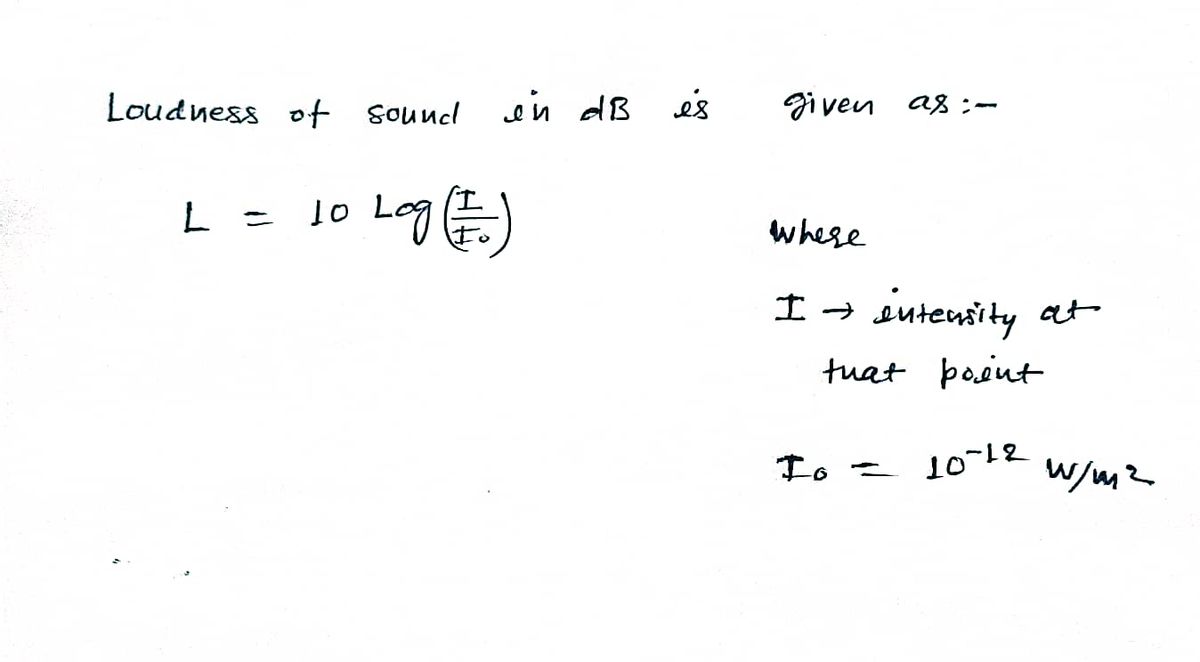 Loudness of sound in dB is given as :-
L = 10 Log(I/I₀)
where
I → intensity at
that point
I₀ = 10⁻¹² W/m²